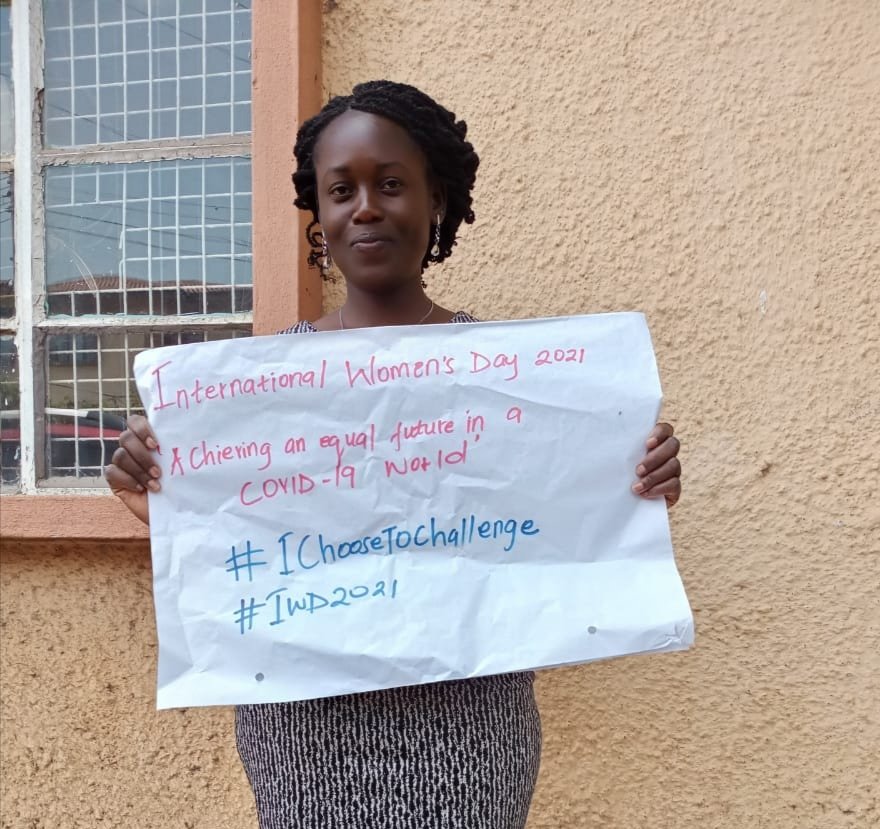 International Women's Day 2021
"Achieving an equal future in a
COVID-19 World"
#IChooseToChallenge
#IWD2021